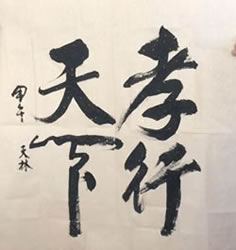 孝行
天下
甲午 天林